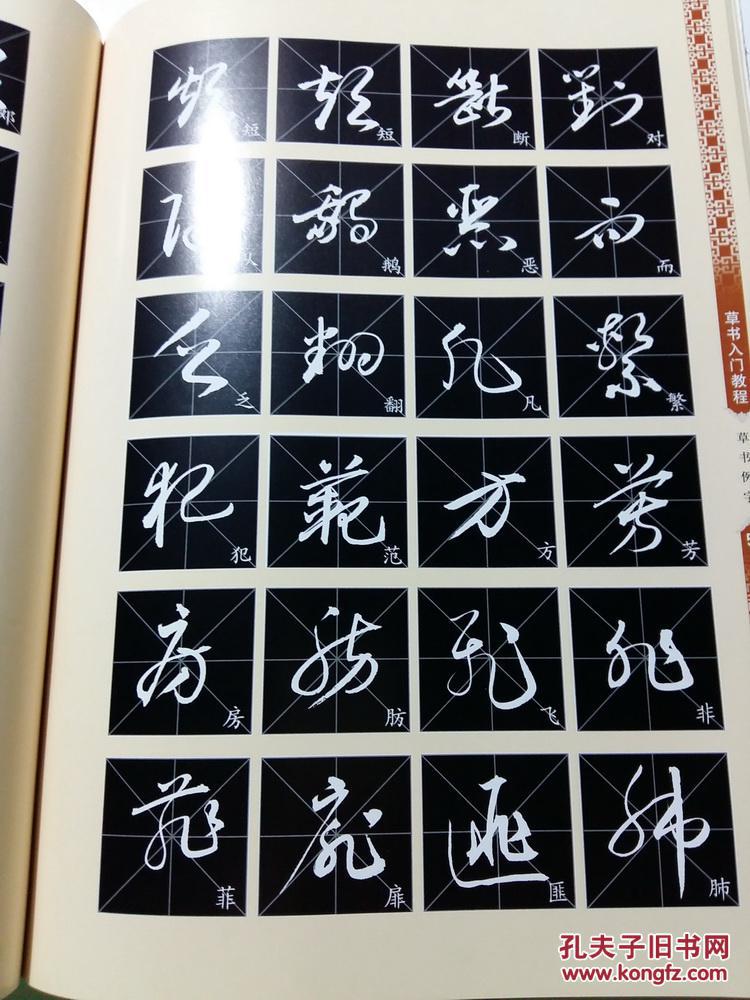 短 短 断 对
鹅 恶 而
乏 翻 凡 繁
犯 范 方 芳
房 肪 飞 非
菲 扉 匪 肺
草书入门教程
草书例
孔夫子旧书网
www.kongfz.com